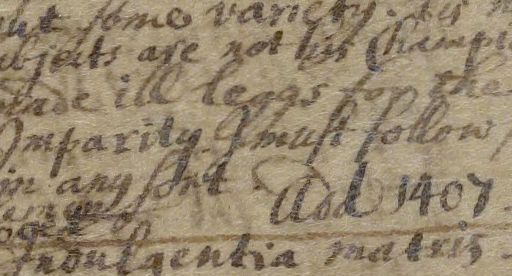 but some variety. his
objects are not his Champi
made ill leggs for the
Imparity I must follow
in any sort
Add 1407.
Indulgentia matris.